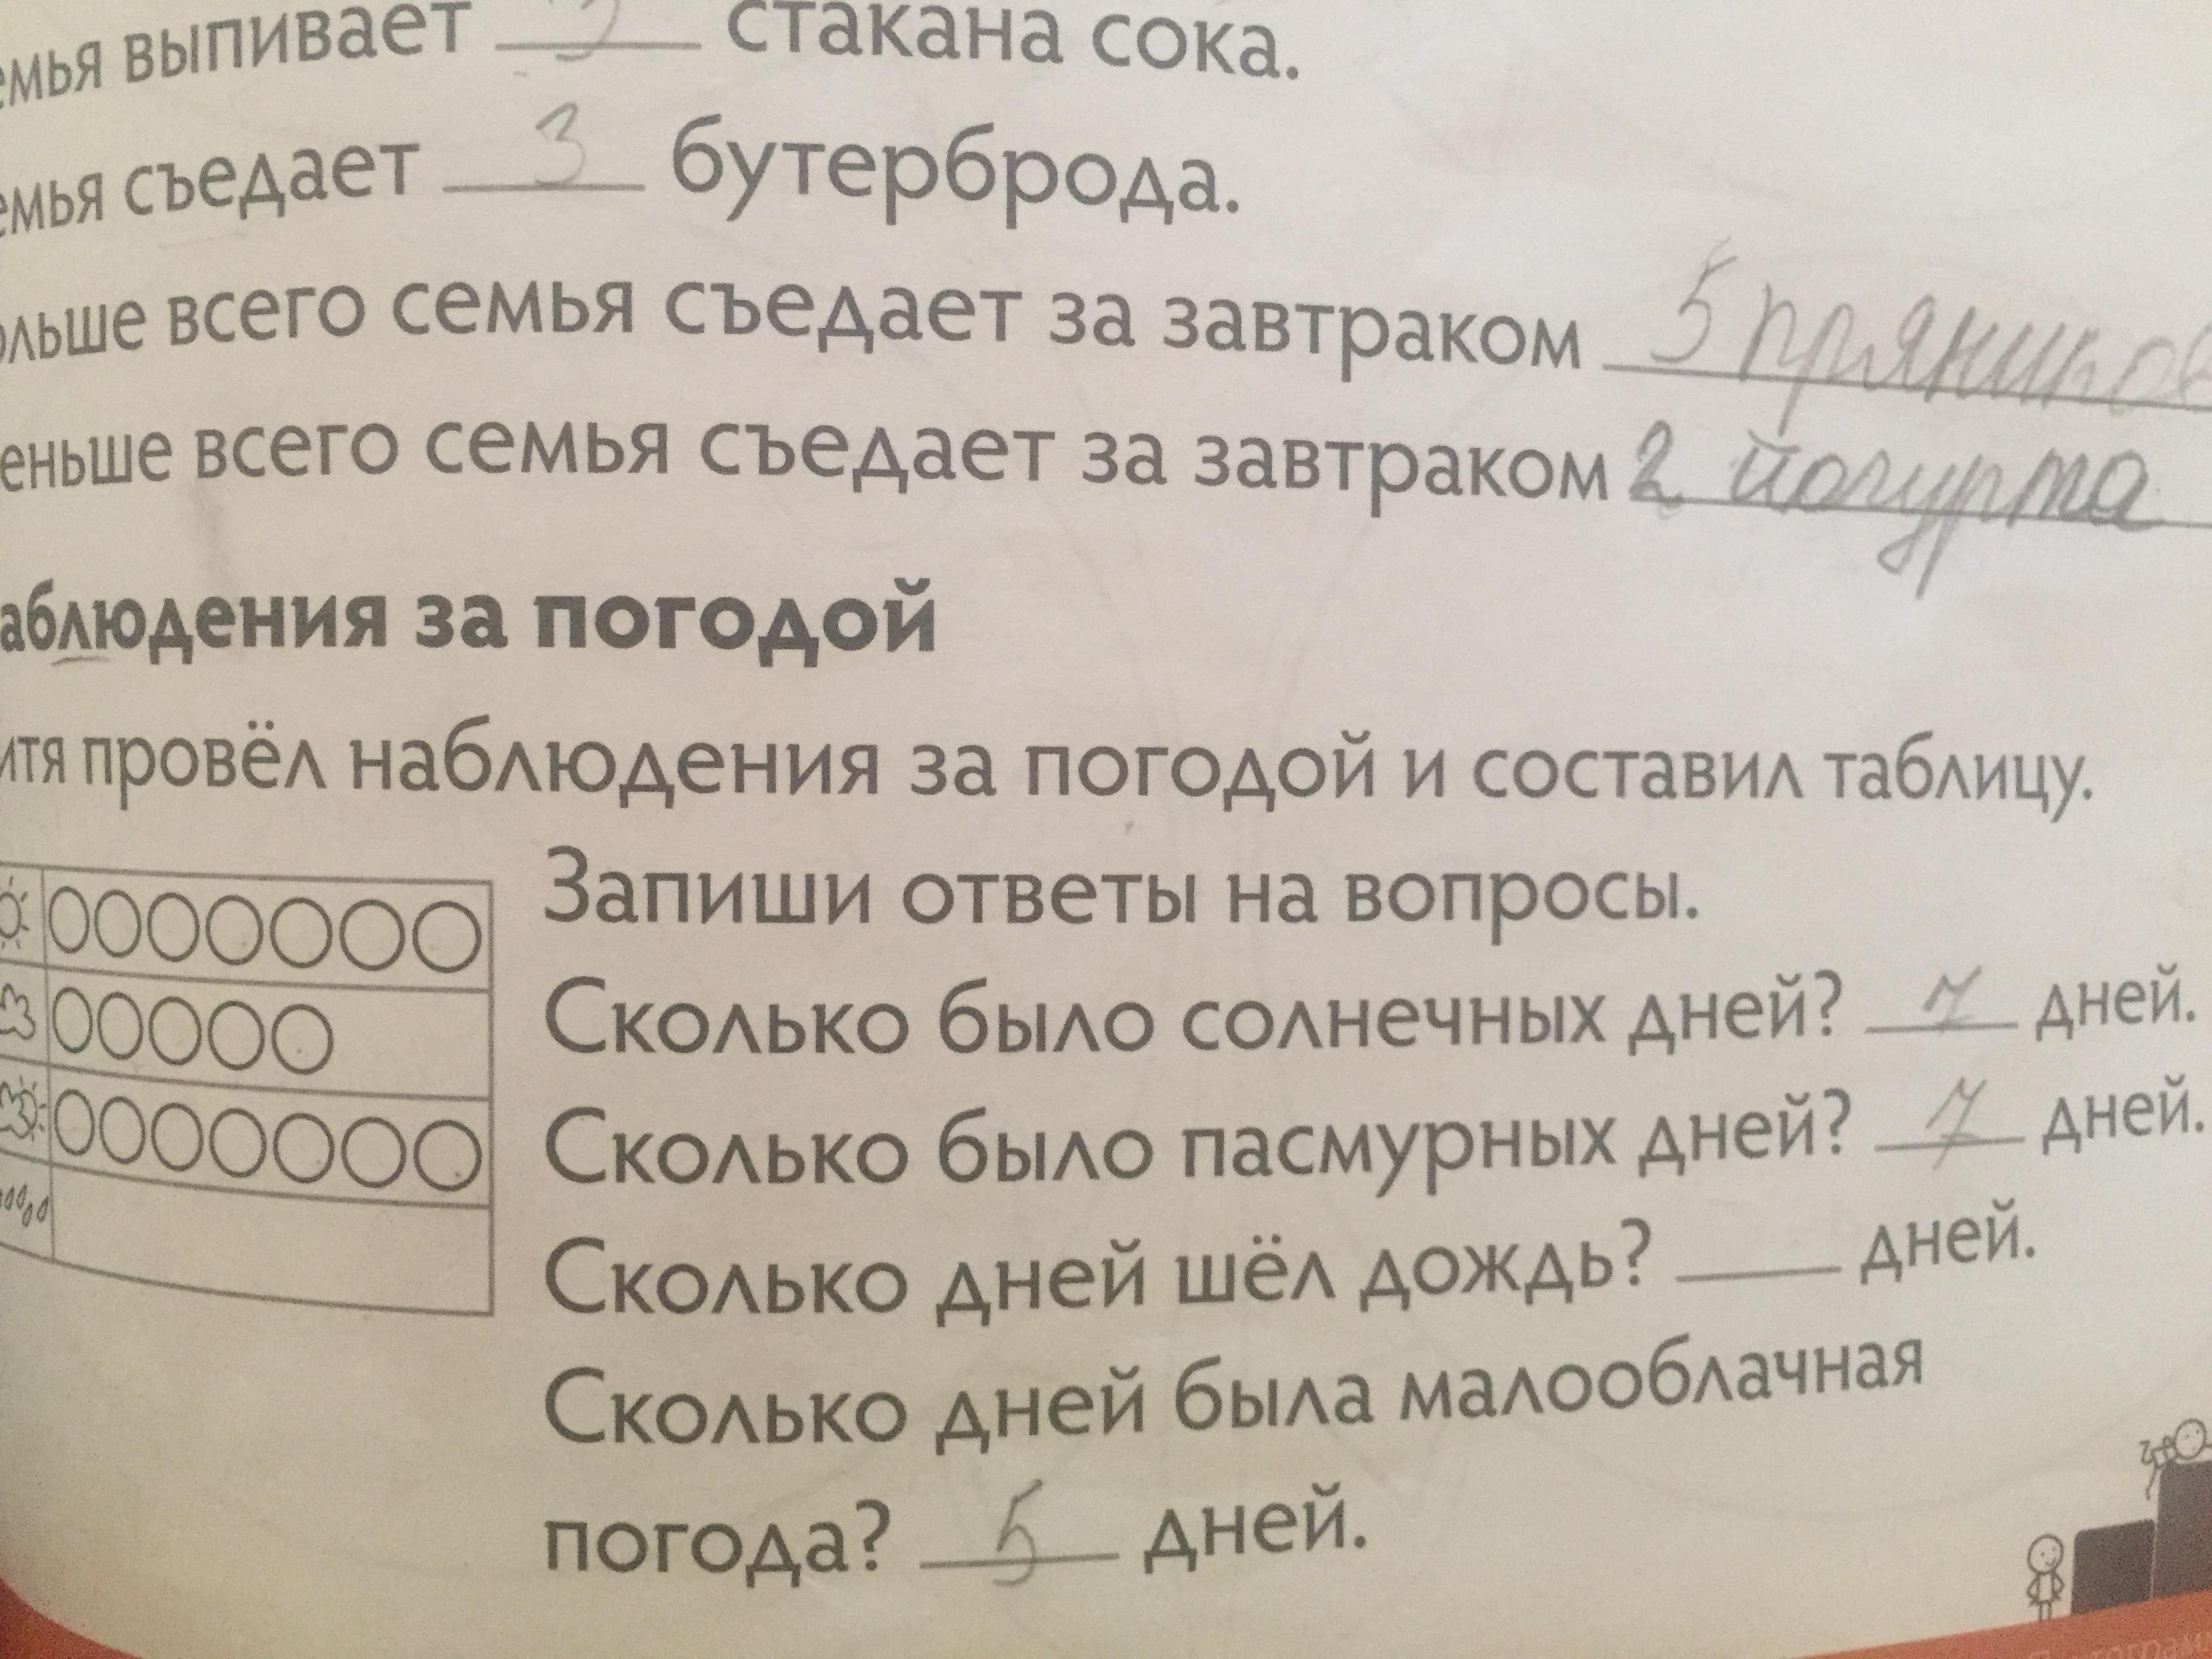 емья выпивает стакана сока.
емья съедает 3 бутерброда.
ольше всего семья съедает за завтраком 5 пряников
еньше всего семья съедает за завтраком 2 йогурта
аблюдения за погодой
итя провёл наблюдения за погодой и составил таблицу.
Запиши ответы на вопросы.
Сколько было солнечных дней? 7 дней.
Сколько было пасмурных дней? 7 дней.
Сколько дней шёл дождь? ____ дней.
Сколько дней была малооблачная
погода? 5 дней.